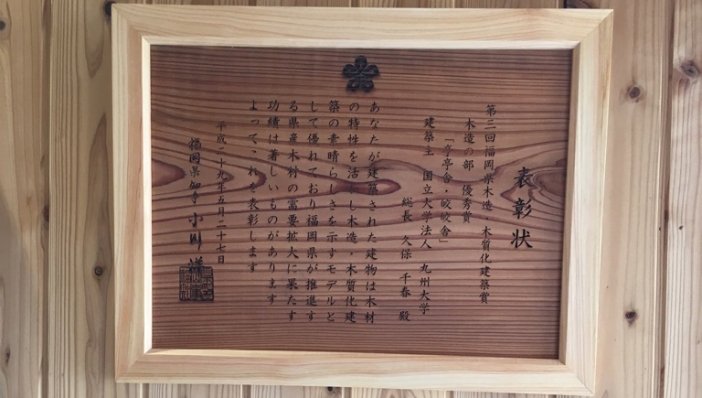 表彰状
第三回福岡県木造・木質化建築賞
木造の部 優秀賞
「亭亭舎・皎皎舎」
建築主 国立大学法人 九州大学
総長 久保 千春 殿
あなたが建築された建物は木材
の特性を活かし木造・木質化建
築の素晴らしさを示すモデルと
して優れており福岡県が推進す
る県産木材の需要拡大に果たす
功績は著しいものがあります
よってこれを表彰します
平成二十九年五月二十七日
福岡県知事 小川 洋